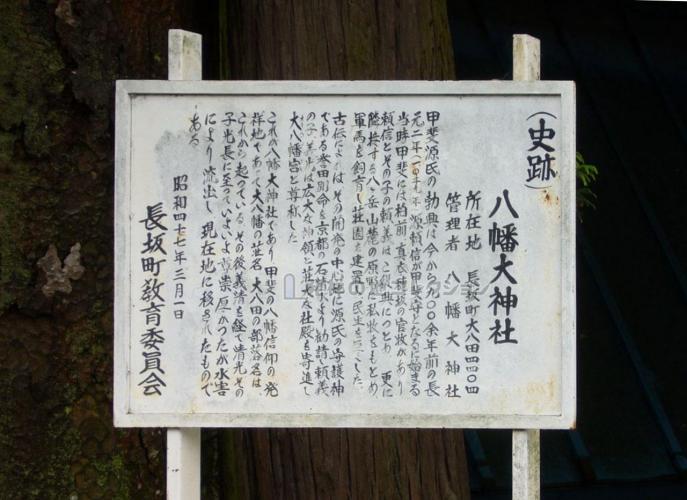 (史跡)
八幡大神社
所在地 長坂町大八田四四〇四
管理者 八幡大神社
甲斐源氏の勃興は今から九〇〇余年前の長
元二年(一〇二九)年 源頼信が甲斐守となるに始まる
当時甲斐には柏前 真衣 穂坂の官牧があり
頼信とその子の頼義は この復興につとめ 更に
隣接する八ヶ岳山麓の原野に私牧をもとめ
軍馬を飼育し荘園を建置し民生を
古伝によれば その開発の中心地に源氏の守護神
である誉田別命を京都の石清水より勧請 頼義
の子義光は広大な神領と荘厳な社殿を寄進し
大八幡宮と尊称した
これが八幡大神社であり 甲斐の八幡信仰の発
祥地であって大八幡の荘名 大八田の部落名は
これから起っている その後義清を経て清光その
子光長に至っていよいよ尊崇厚かったが水害
により流出し現在地に移されたもので
ある
昭和四十七年三月一日
長坂町教育委員会